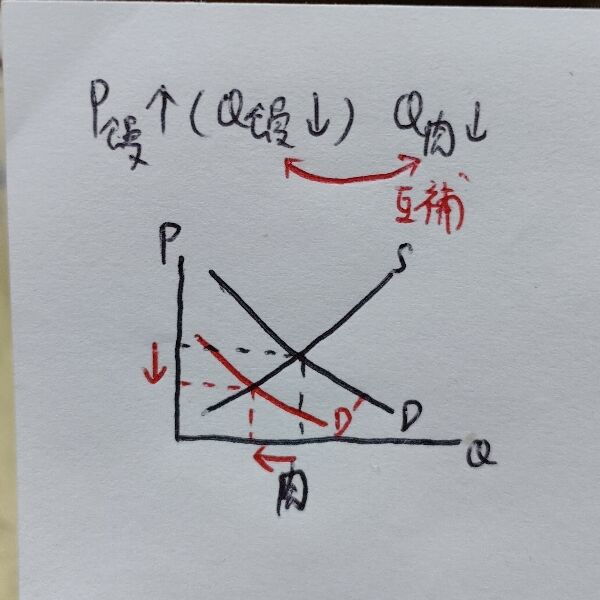 P饅↑(Q饅↓) Q肉↓
互補
P
S
D
D
Q
肉